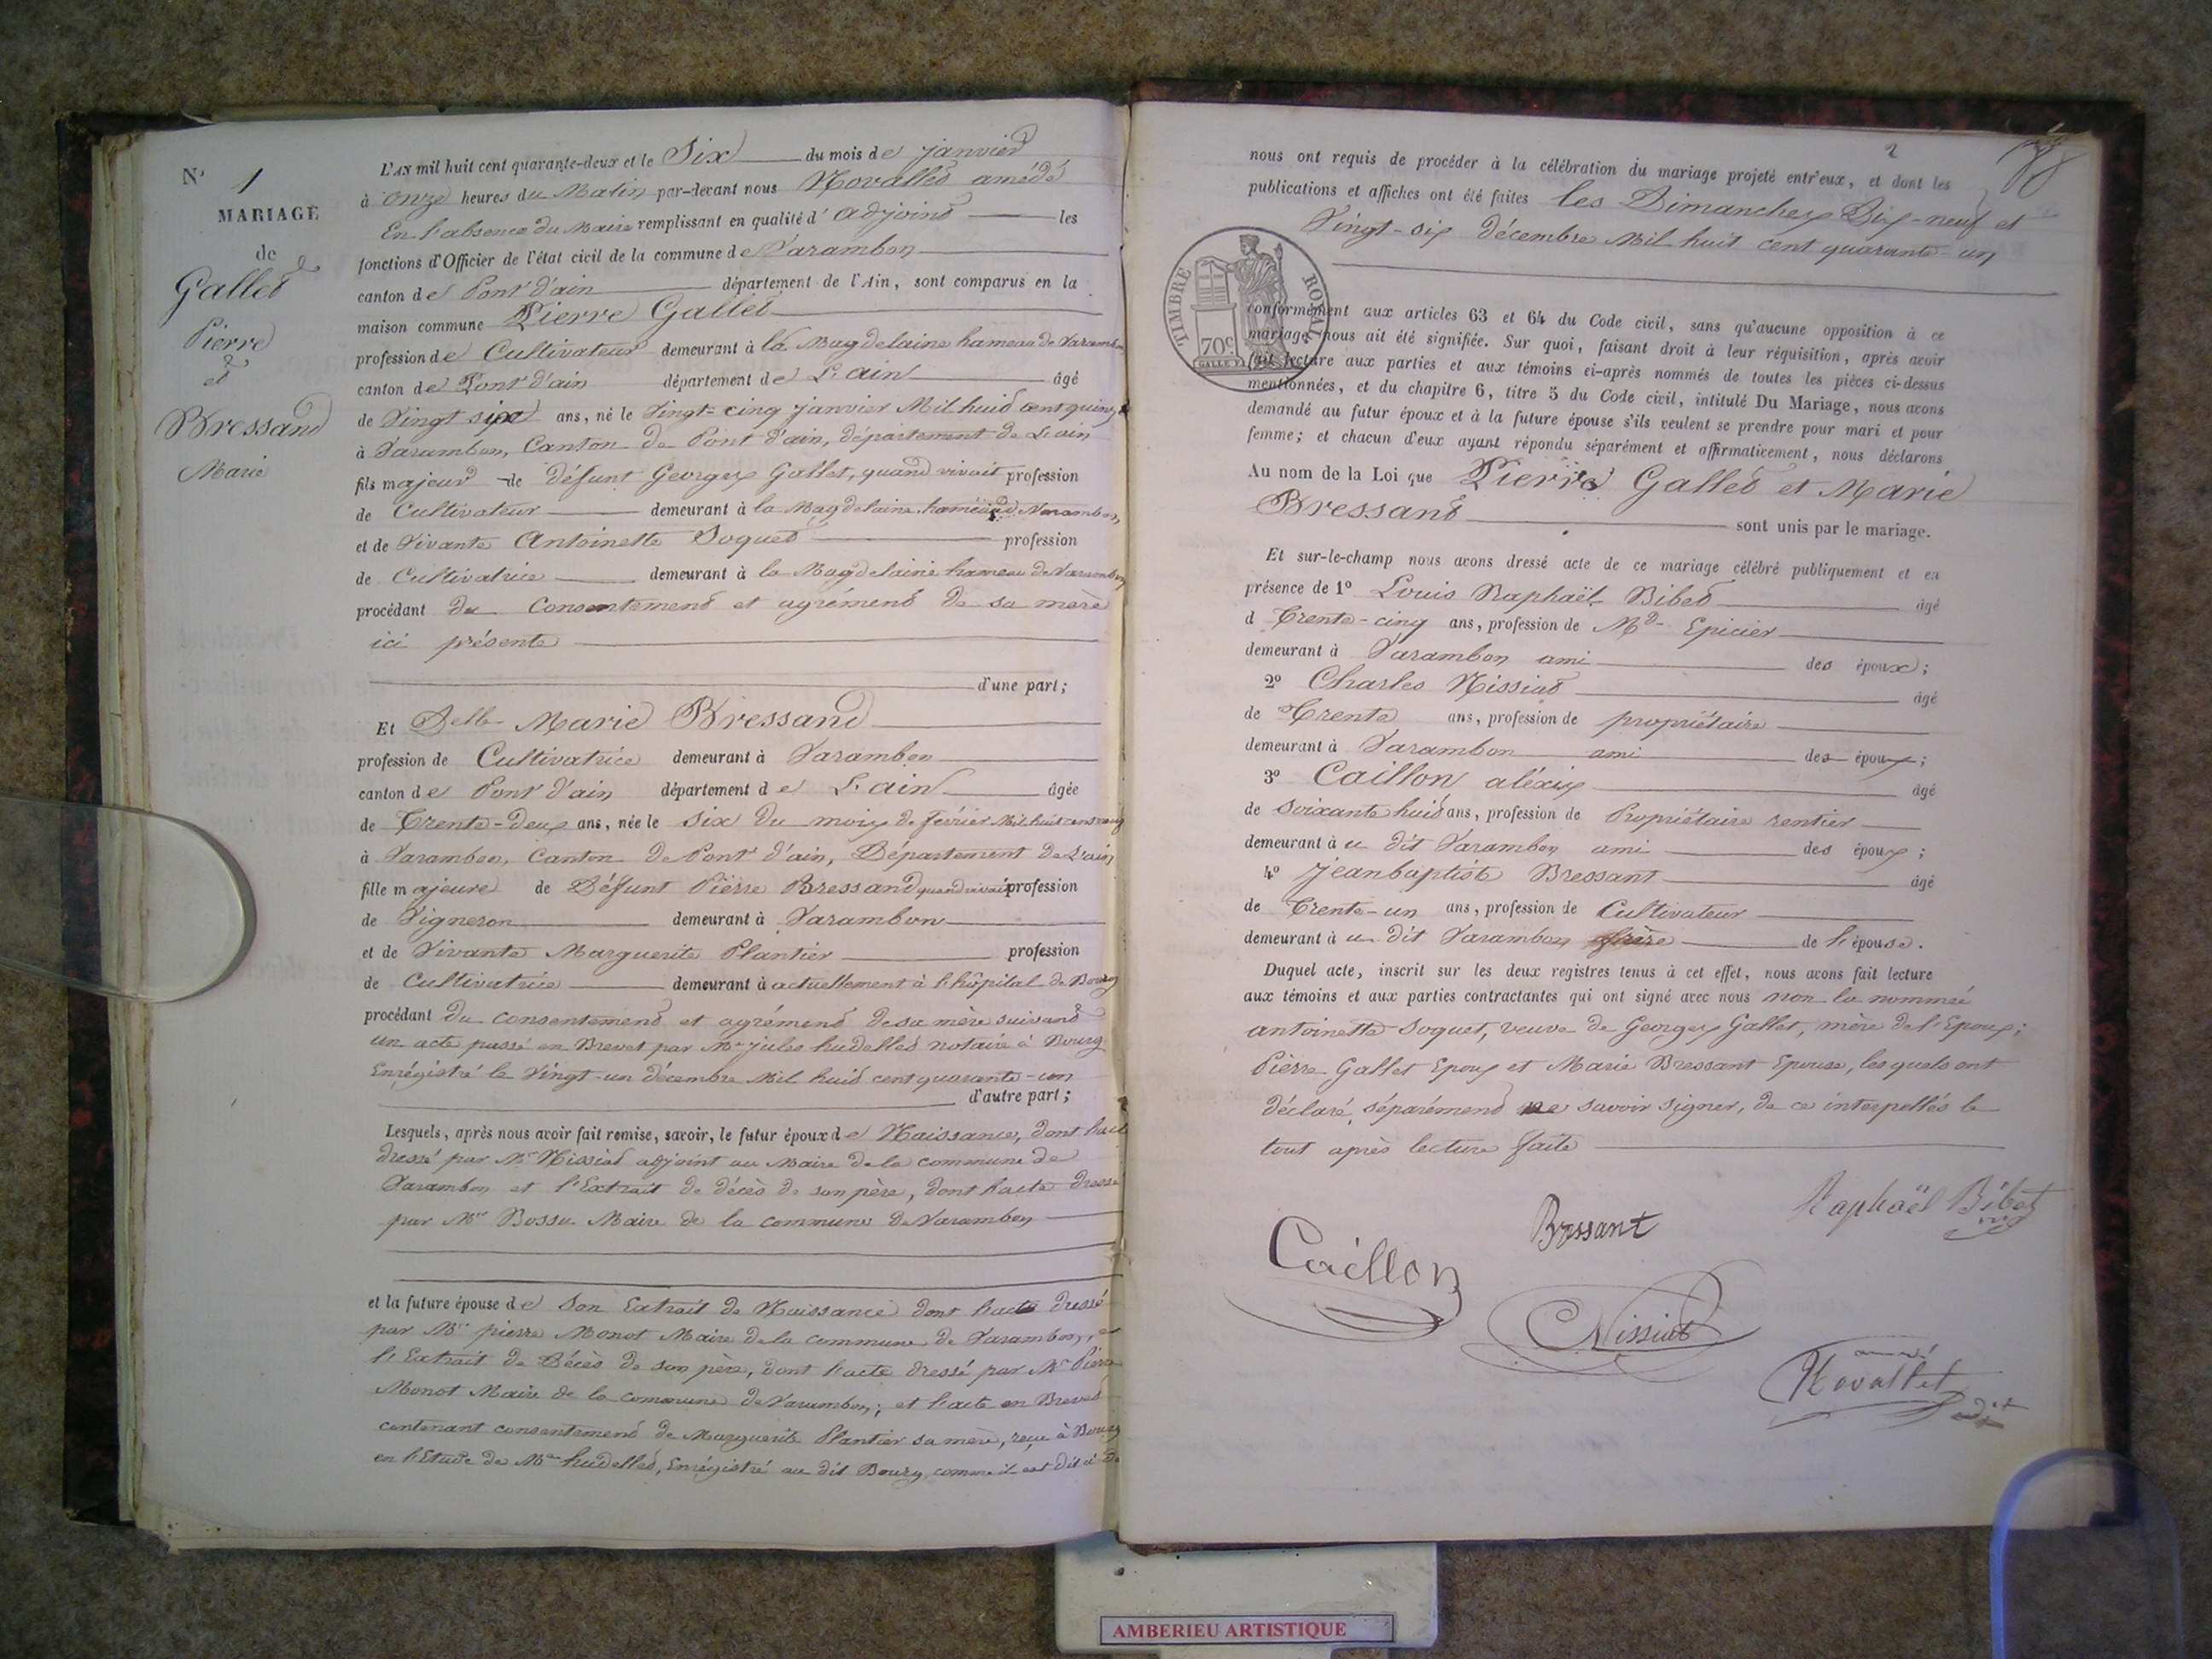 N° 1
MARIAGE
de
Gallet
Pierre
et
Bressand
Marie
L'AN mil huit cent quarante-deux et le Six du mois de janvier
à onze heures du Matin par-devant nous Novallet amédé
En l'absence du Maire remplissant en qualité d'adjoint les
fonctions d'Officier de l'état civil de la commune de Varambon
canton de Pont d'ain département de l'Ain, sont comparus en la
maison commune Pierre Gallet
profession de Cultivateur demeurant à la Magdelaine hameau de Varambon
canton de Pont d'ain département de L'ain âgé
de Vingt six ans, né le Vingt-cinq janvier Mil huit cent quinze
à Varambon, Canton de Pont d'ain, département de L'ain
fils majeur de défunt Georges Gallet, quand vivait profession
de Cultivateur demeurant à la Magdelaine hameau de Varambon
et de Vivante Antoinette Soquet profession
de Cultivatrice demeurant à la Magdelaine hameau de Varambon
procédant du Consentement et agrément de sa mère
ici présente
d'une part;
Et Delle Marie Bressand
profession de Cultivatrice demeurant à Varambon
canton de Pont d'ain département de L'ain âgée
de Trente-deux ans, née le Six du mois de février Mil huit cent
à Varambon, Canton de Pont d'ain, Département de L'ain
fille majeure de Défunt Pierre Bressand quand vivait profession
de Vigneron demeurant à Varambon
et de Vivante Marguerite Plantier profession
de Cultivatrice demeurant à actuellement à l'hôpital de Bourg
procédant du consentement et agrément de sa mère suivant
un acte passé en Brevet par Me jules hudellet notaire à Bourg
Enrégistré le Vingt-un décembre Mil huit cent quarante-un
d'autre part;
Lesquels, après nous avoir fait remise, savoir, le futur époux de Naissance, dont l'acte
dressé par Mr Nissiat adjoint au Maire de la commune de
Varambon et l'Extrait de décès de son père, dont l'acte dressé
par Mr Bossu Maire de la commune de Varambon
et la future épouse de Son Extrait de Naissance dont l'acte dressé
par Mr pierre Monot Maire de la commune de Varambon, et
l'Extrait de Décès de son père, dont l'acte dressé par Mr Pierre
Monot Maire de la commune de Varambon; et l'acte en Brevet
contenant consentement de Marguerite Plantier sa mère, reçu à Bourg
en l'Etude de Me hudellet, Enrégistré au dit Bourg, comme il est dit
2
nous ont requis de procéder à la célébration du mariage projeté entr'eux, et dont les
publications et affiches ont été faites les Dimanches Dix-neuf et
Vingt-six décembre Mil huit cent quarante-un
TIMBRE ROYAL
70c
conformément aux articles 63 et 64 du Code civil, sans qu'aucune opposition à ce
mariage nous ait été signifiée. Sur quoi, faisant droit à leur réquisition, après avoir
fait lecture aux parties et aux témoins ci-après nommés de toutes les pièces ci-dessus
mentionnées, et du chapitre 6, titre 5 du Code civil, intitulé Du Mariage, nous avons
demandé au futur époux et à la future épouse s'ils veulent se prendre pour mari et pour
femme; et chacun d'eux ayant répondu séparément et affirmativement, nous déclarons
Au nom de la Loi que Pierre Gallet et Marie
Bressant sont unis par le mariage.
Et sur-le-champ nous avons dressé acte de ce mariage célébré publiquement et en
présence de 1° Louis Raphaël Bibet âgé
d Trente-cinq ans, profession de Md Epicier
demeurant à Varambon ami des époux;
2° Charles Nissiat âgé
de Trente ans, profession de propriétaire
demeurant à Varambon ami des époux;
3° Caillon aléxis âgé
de Soixante huit ans, profession de Propriétaire rentier
demeurant à u dit Varambon ami des époux;
4° Jeanbaptiste Bressant âgé
de Trente-un ans, profession de Cultivateur
demeurant à u dit Varambon frère de l'épouse.
Duquel acte, inscrit sur les deux registres tenus à cet effet, nous avons fait lecture
aux témoins et aux parties contractantes qui ont signé avec nous non la nommée
antoinette Soquet, veuve de Georges Gallet, mère de l'Epoux;
Pierre Gallet Epoux et Marie Bressant Epouse, les quels ont
déclaré séparément ne savoir signer, de ce interpellés le
tout après lecture faite
Raphaël Bibet
Bressant
Caillon
C Nissiat
amédé
Novallet
adjt
AMBERIEU ARTISTIQUE